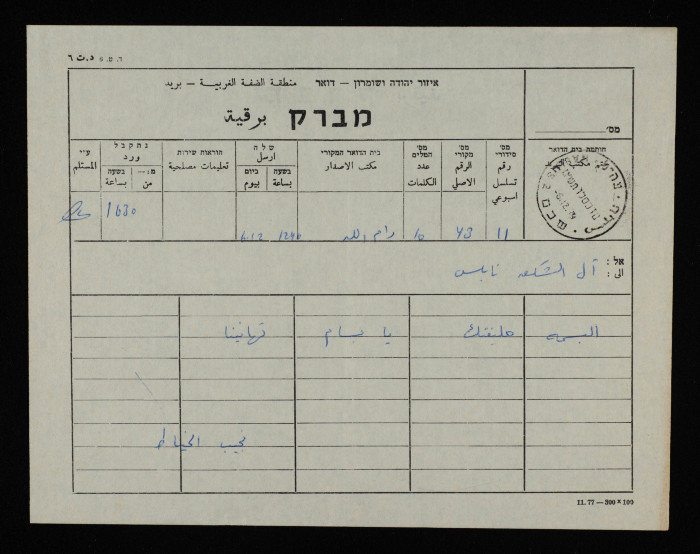 ד. ט. 6 د.ت ٦
איזור יהודה ושומרון – דואר منطقة الضفة الغربية – بريد
מברק برقية
מס'
חותמת בית הדואר
מס' סידורי رقم تسلسل اسبوعي
מס' מקורי الرقم الاصلي
מס' המלים عدد الكلمات
בית הדואר המקורי مكتب الاصدار
שלח ارسل
בשעה بساعة
ביום بيوم
הוראות שירות تعليمات مصلحية
נתקבל ورد
מ:— من
בשעה بساعة
ע"י المستلم
11 43 10 رام الله 1240 6.12 1630
שכם
6.12.79
אל : الى :
آل الشكعه نابلس
البسمه حليفتك يا بسام تهانينا
نجيب الخياط
11. 77 — 300 × 100